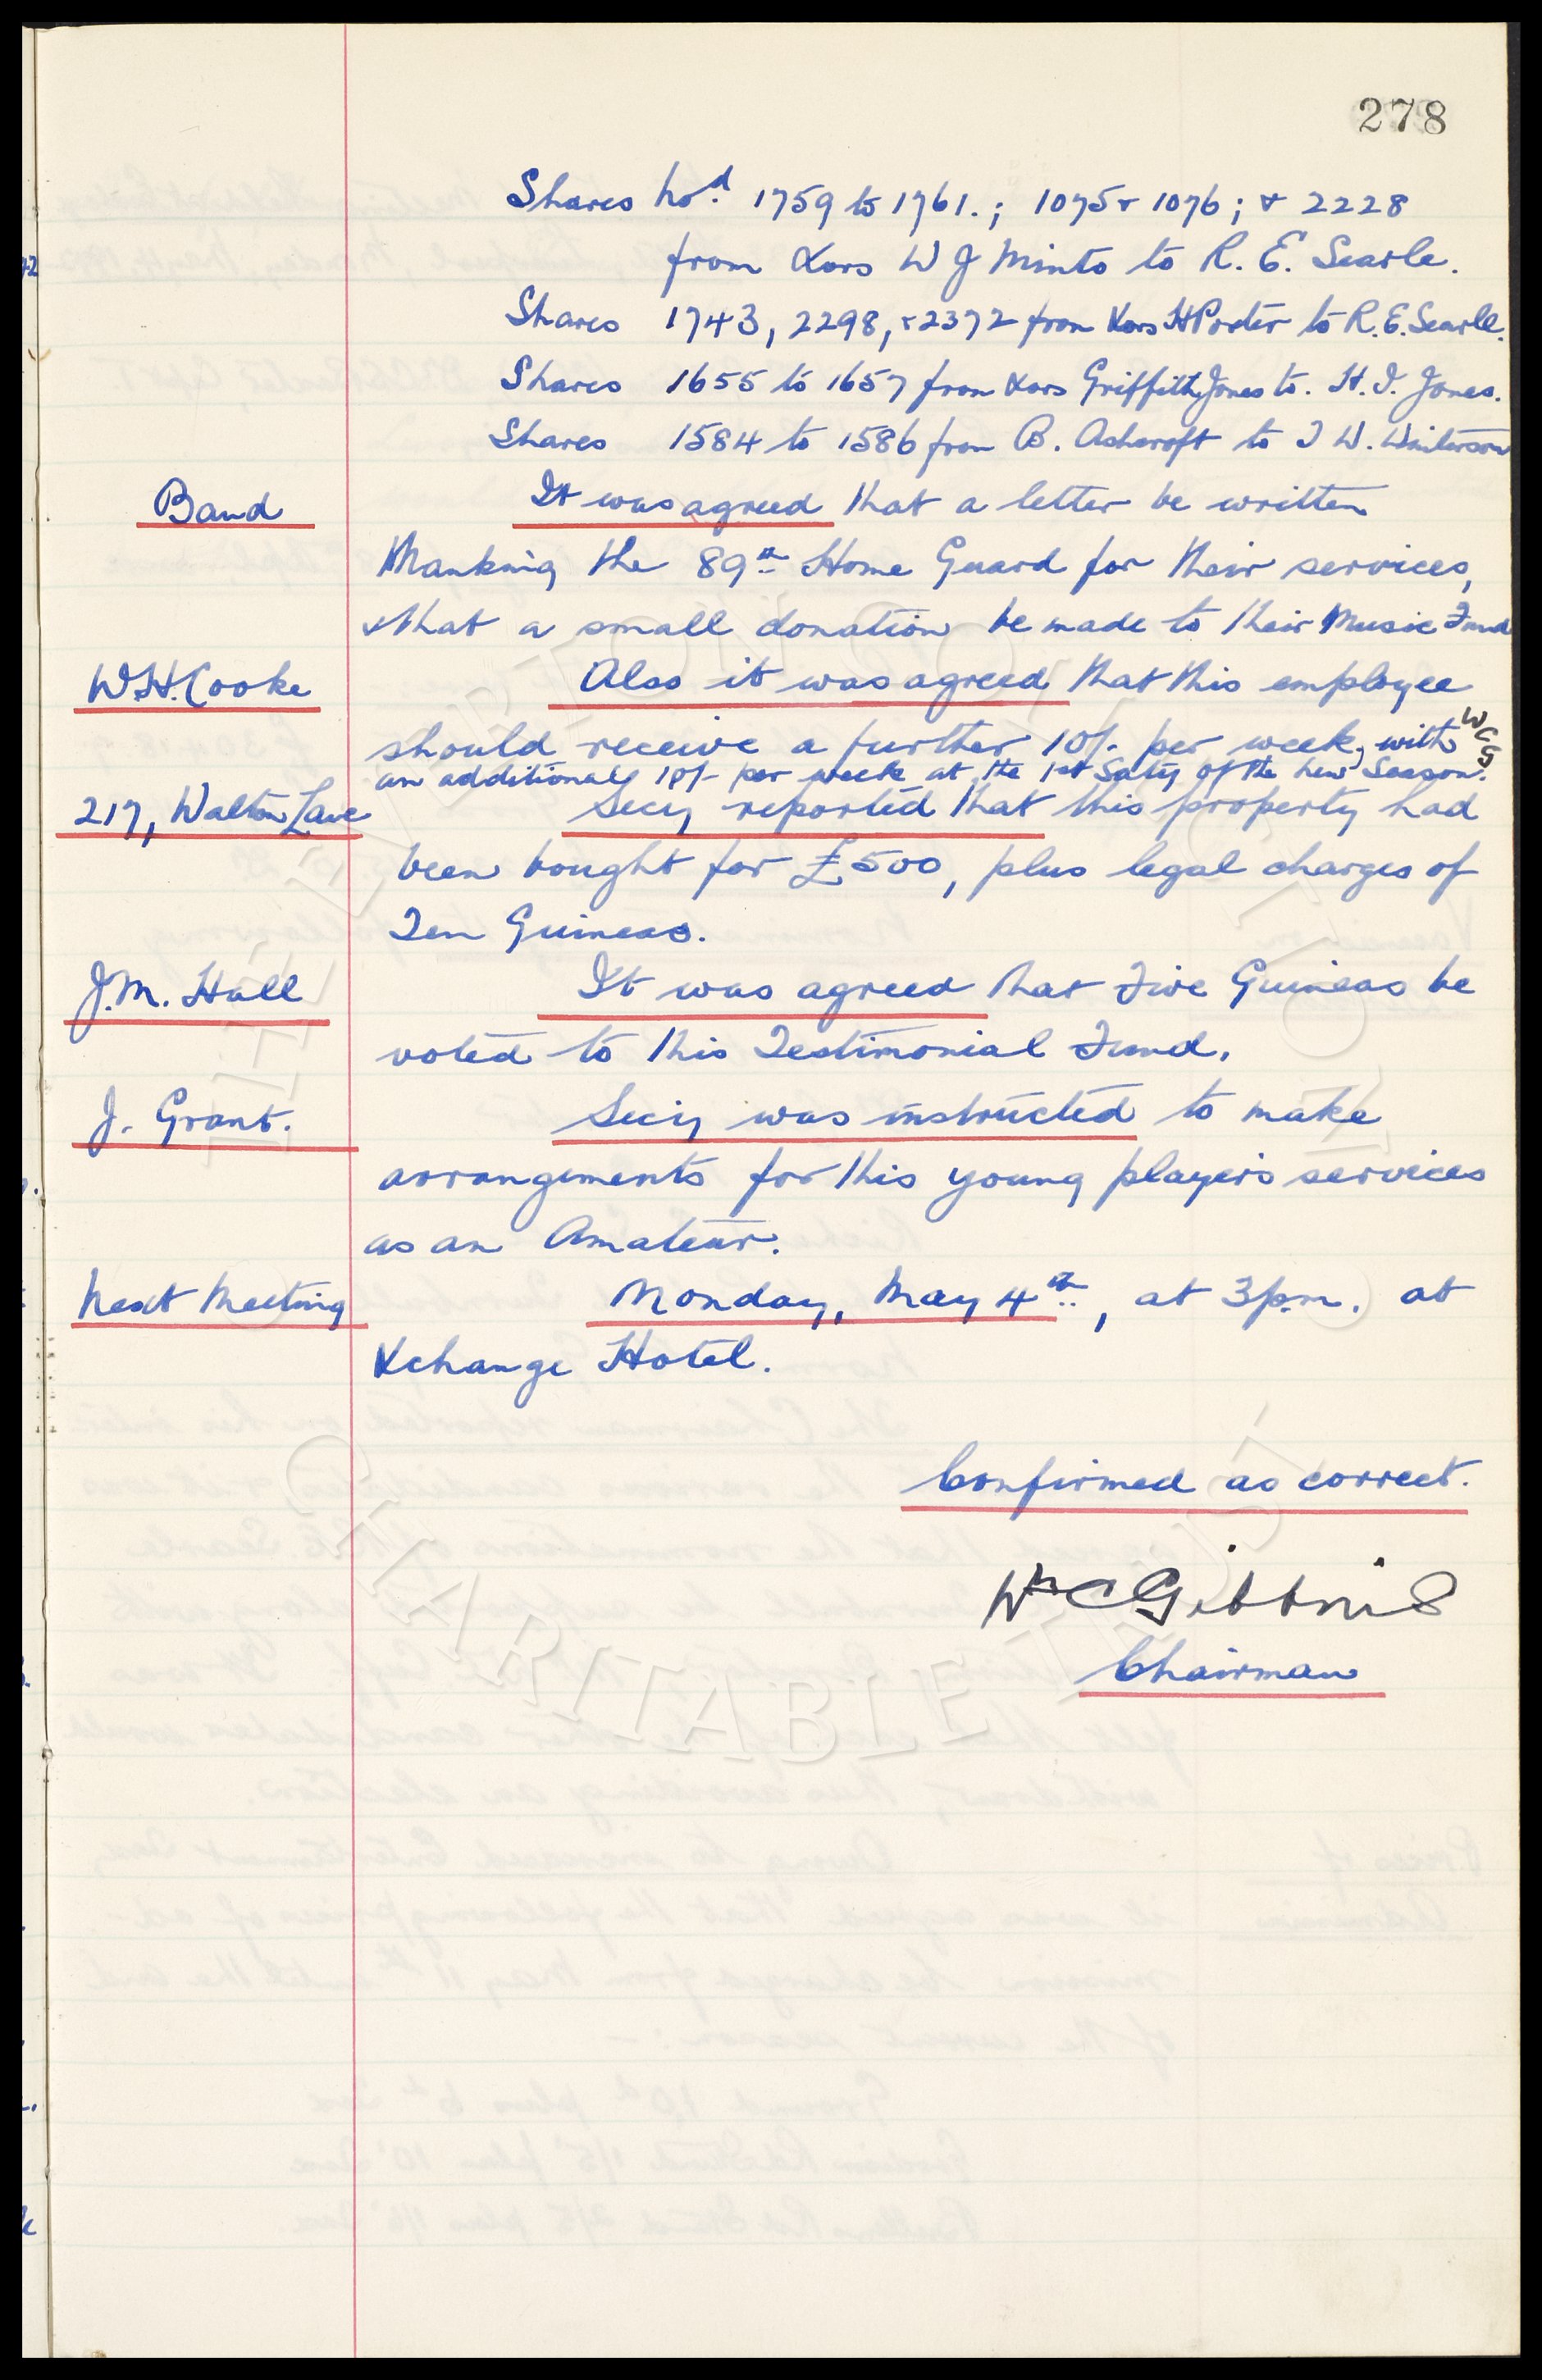 278
Shares Nod. 1759 to 1761.; 1075 & 1076; & 2228
from Xors W J Minto to R. E. Searle.
Shares 1743, 2298, & 2372 from Xors H Porter to R. E. Searle.
Shares 1655 to 1657 from Xors Griffith Jones to. H. I. Jones.
Shares 1584 to 1586 from B. Ashcroft to T W. Winterson
Band It was agreed that a letter be written
thanking the 89th Home Guard for their services,
& that a small donation be made to their Music Fund
W.H. Cooke Also it was agreed that this employee
should receive a further 10/- per week, with WCG
an additional 10/- per week at the 1st Saty of the New Season.
217, Walton Lane Secy reported that this property had
been bought for £500, plus legal charges of
Ten Guineas.
J.M. Hall It was agreed that Five Guineas be
voted to this Testimonial Fund.
J. Grant. Secy was instructed to make
arrangements for this young player's services
as an Amateur.
Next Meeting Monday, May 4th, at 3 p.m. at
Xchange Hotel.
Confirmed as correct.
Wm C Gibbins
Chairman
CHARITABLE